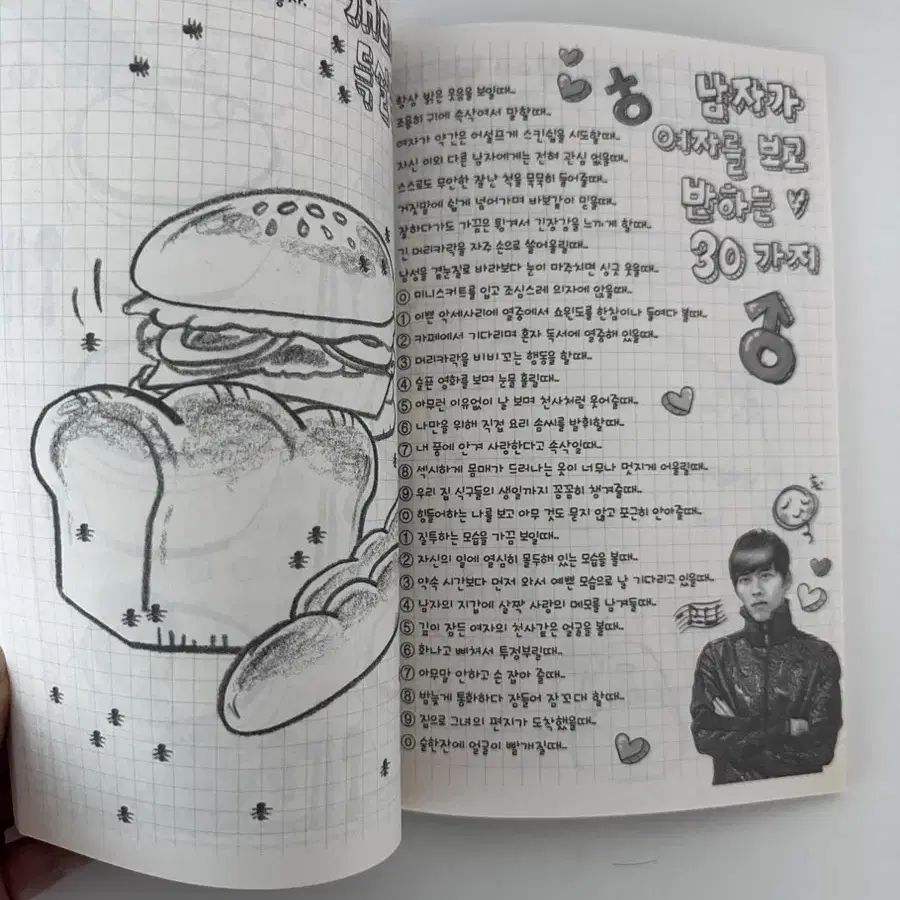 독
남자가
여자를 보고
반하는
30 가지
항상 밝은 웃음을 보일때..
조용히 귀에 속삭여서 말할때..
여자가 약간은 어설프게 스킨쉽을 시도할때..
자신 이외 다른 남자에게는 전혀 관심 없을때..
스스로도 무안한 잘난 척을 묵묵히 들어줄때..
거짓말에 쉽게 넘어가며 바보같이 믿을때..
잘하다가도 가끔은 튕겨서 긴장감을 느끼게 할때..
긴 머리카락을 자주 손으로 쓸어올릴때..
남성을 곁눈질로 바라보다 눈이 마주치면 싱긋 웃을때..
⓪ 미니스커트를 입고 조심스레 의자에 앉을때..
① 이쁜 악세사리에 열중해서 쇼윈도를 한참이나 들여다 볼때..
② 카페에서 기다리며 혼자 독서에 열중해 있을때..
③ 머리카락을 비비 꼬는 행동을 할때..
④ 슬픈 영화를 보며 눈물 흘릴때..
⑤ 아무런 이유없이 날 보며 천사처럼 웃어줄때..
⑥ 나만을 위해 직접 요리 솜씨를 발휘할때..
⑦ 내 품에 안겨 사랑한다고 속삭일때..
⑧ 섹시하게 몸매가 드러나는 옷이 너무나 멋지게 어울릴때..
⑨ 우리 집 식구들의 생일까지 꼼꼼히 챙겨줄때..
⓪ 힘들어하는 나를 보고 아무 것도 묻지 않고 포근히 안아줄때..
① 질투하는 모습을 가끔 보일때..
② 자신의 일에 열심히 몰두해 있는 모습을 볼때..
③ 약속 시간보다 먼저 와서 예쁜 모습으로 날 기다리고 있을때..
④ 남자의 지갑에 살짝 사랑의 메모를 남겨둘때..
⑤ 깊이 잠든 여자의 천사같은 얼굴을 볼때..
⑥ 화나고 삐쳐서 투정부릴때..
⑦ 아무말 안하고 손 잡아 줄때..
⑧ 밤늦게 통화하다 잠들어 잠꼬대 할때..
⑨ 집으로 그녀의 편지가 도착했을때..
⓪ 술한잔에 얼굴이 빨개질때..